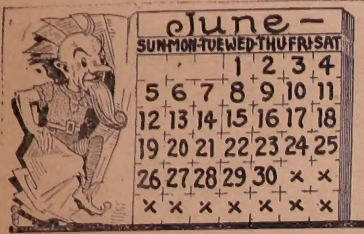 June-
SUN·MON·TUE·WED·THU·FRI·SAT
1 2 3 4
5 6 7 8 9 10 11
12 13 14 15 16 17 18
19 20 21 22 23 24 25
26 27 28 29 30 × ×
× × × × × × ×